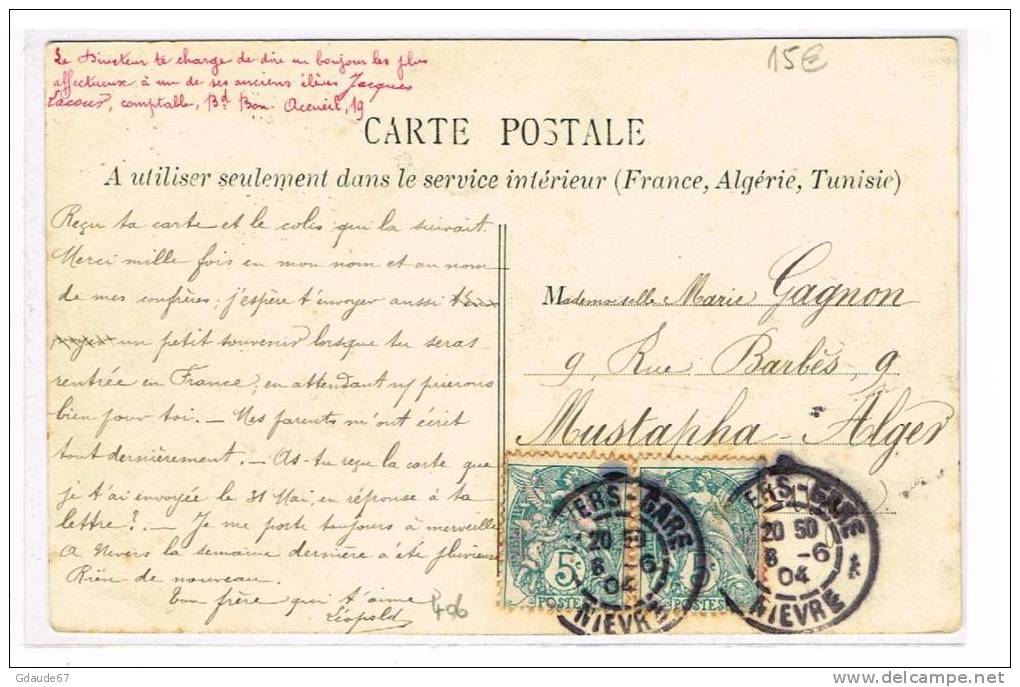 Le Directeur te charge de dire un bonjour les plus
affectueux à un de ses anciens élèves Jacques
Lacour, comptable, Bd Bon Accueil, 19
15€
CARTE POSTALE
A utiliser seulement dans le service intérieur (France, Algérie, Tunisie)
Reçu ta carte et le colis qui la suivait.
Merci mille fois en mon nom et au nom
de mes confrères; j'espère t'envoyer aussi
un petit souvenir lorsque tu seras
rentrée en France; en attendant prierons
bien pour toi. — Mes parents m'ont écrit
tout dernièrement. — As-tu reçu la carte que
je t'ai envoyée le 31 Mai, en réponse à ta
lettre? — Je me porte toujours à merveille
A Nevers la semaine dernière a été pluvieuse
Rien de nouveau.
Ton frère qui t'aime
Léopold
406
Mademoiselle Marie Gagnon
9, Rue Barbès, 9
Mustapha - Alger
5c
POSTES
POSTES
VERS-GARE
20 50
6 -6
04
NIEVRE
VERS-GARE
20 50
6 -6
04
NIEVRE
Gdaude67
www.delcampe.net